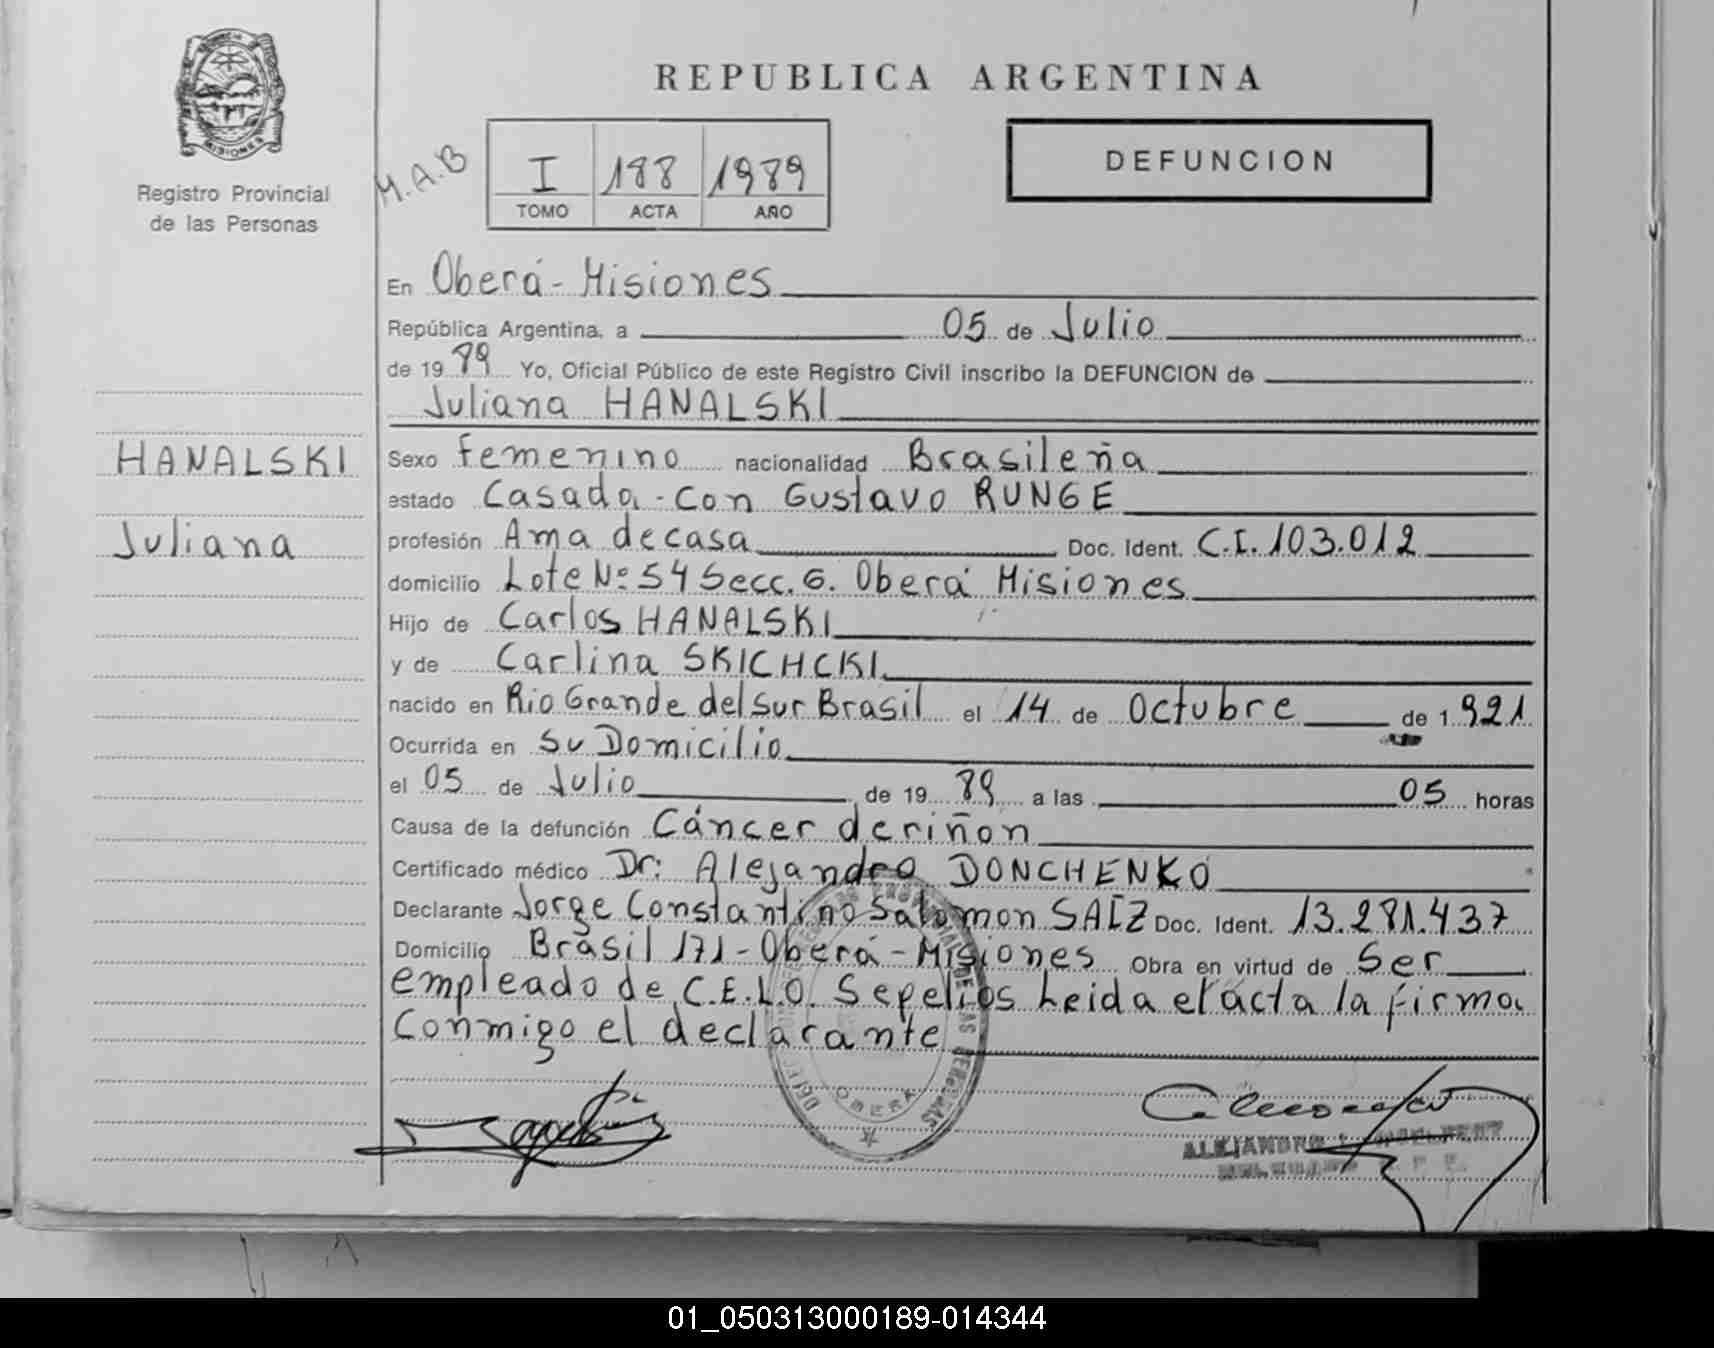 REPUBLICA ARGENTINA
DEFUNCION
MISIONES
Registro Provincial
de las Personas
M.A.B
I 188 1989
TOMO ACTA AÑO
En Oberá - Misiones
República Argentina, a 05 de Julio
de 19 89 Yo, Oficial Público de este Registro Civil inscribo la DEFUNCION de
Juliana HANALSKI
HANALSKI
Juliana
Sexo Femenino nacionalidad Brasileña
estado Casada - Con Gustavo RUNGE
profesión Ama de casa Doc. Ident. C.I. 103.012
domicilio Lote Nº 54 Secc. 6. Oberá Misiones
Hijo de Carlos HANALSKI
y de Carlina SKICHCKI
nacido en Rio Grande del Sur Brasil el 14 de Octubre de 1921
Ocurrida en Su Domicilio
el 05 de Julio de 19 89 a las 05 horas
Causa de la defunción Cáncer de riñon
Certificado médico Dr: Alejandro DONCHENKO
Declarante Jorge Constantino Salomon SAIZ Doc. Ident. 13.281.437
Domicilio Brasil 171 - Oberá - Misiones Obra en virtud de Ser
empleado de C.E.L.O. Sepelios Leida el acta la firma
Conmigo el declarante
OBERA
ALEJANDRO
01_050313000189-014344